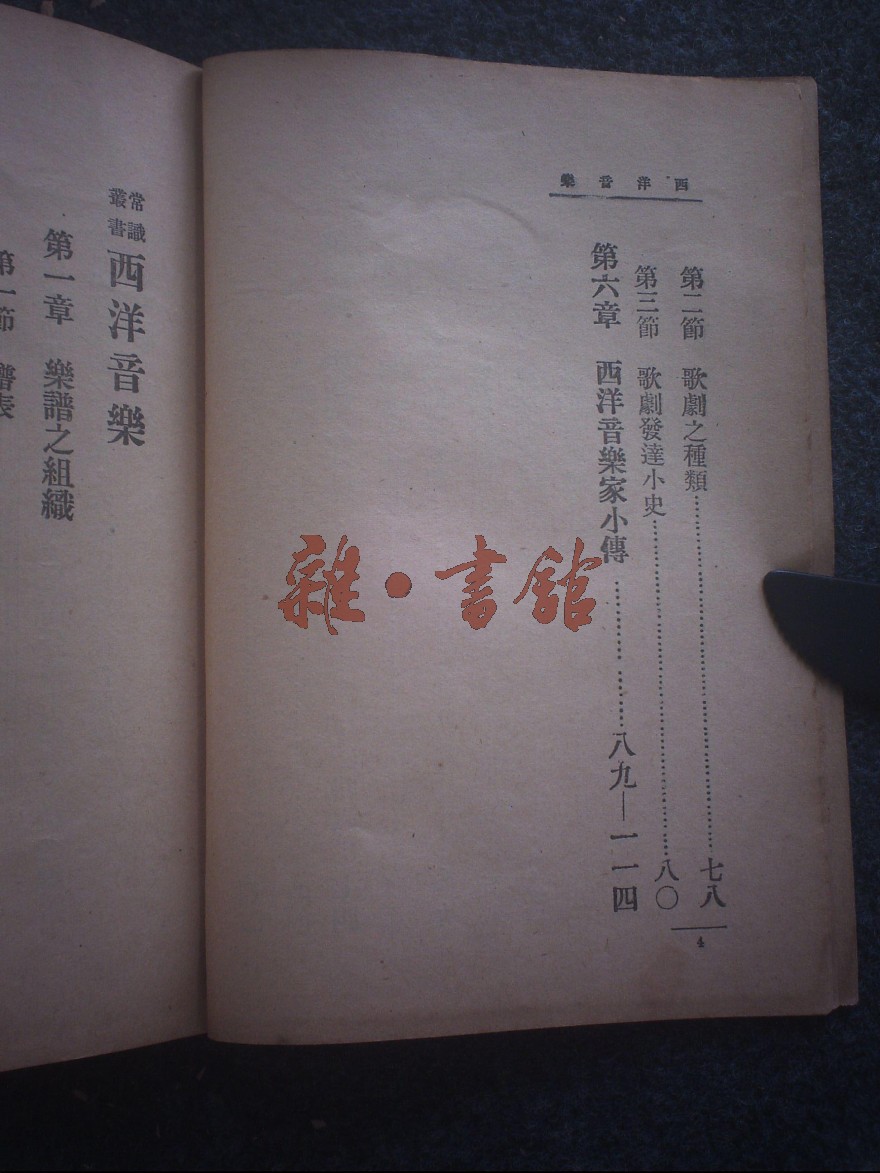 西洋音樂
第二節　歌劇之種類……七八
第三節　歌劇發達小史……八〇
第六章　西洋音樂家小傳……八九—一一四
4
雜·書館
常識叢書
西洋音樂
第一章　樂譜之組織
第一節　譜表